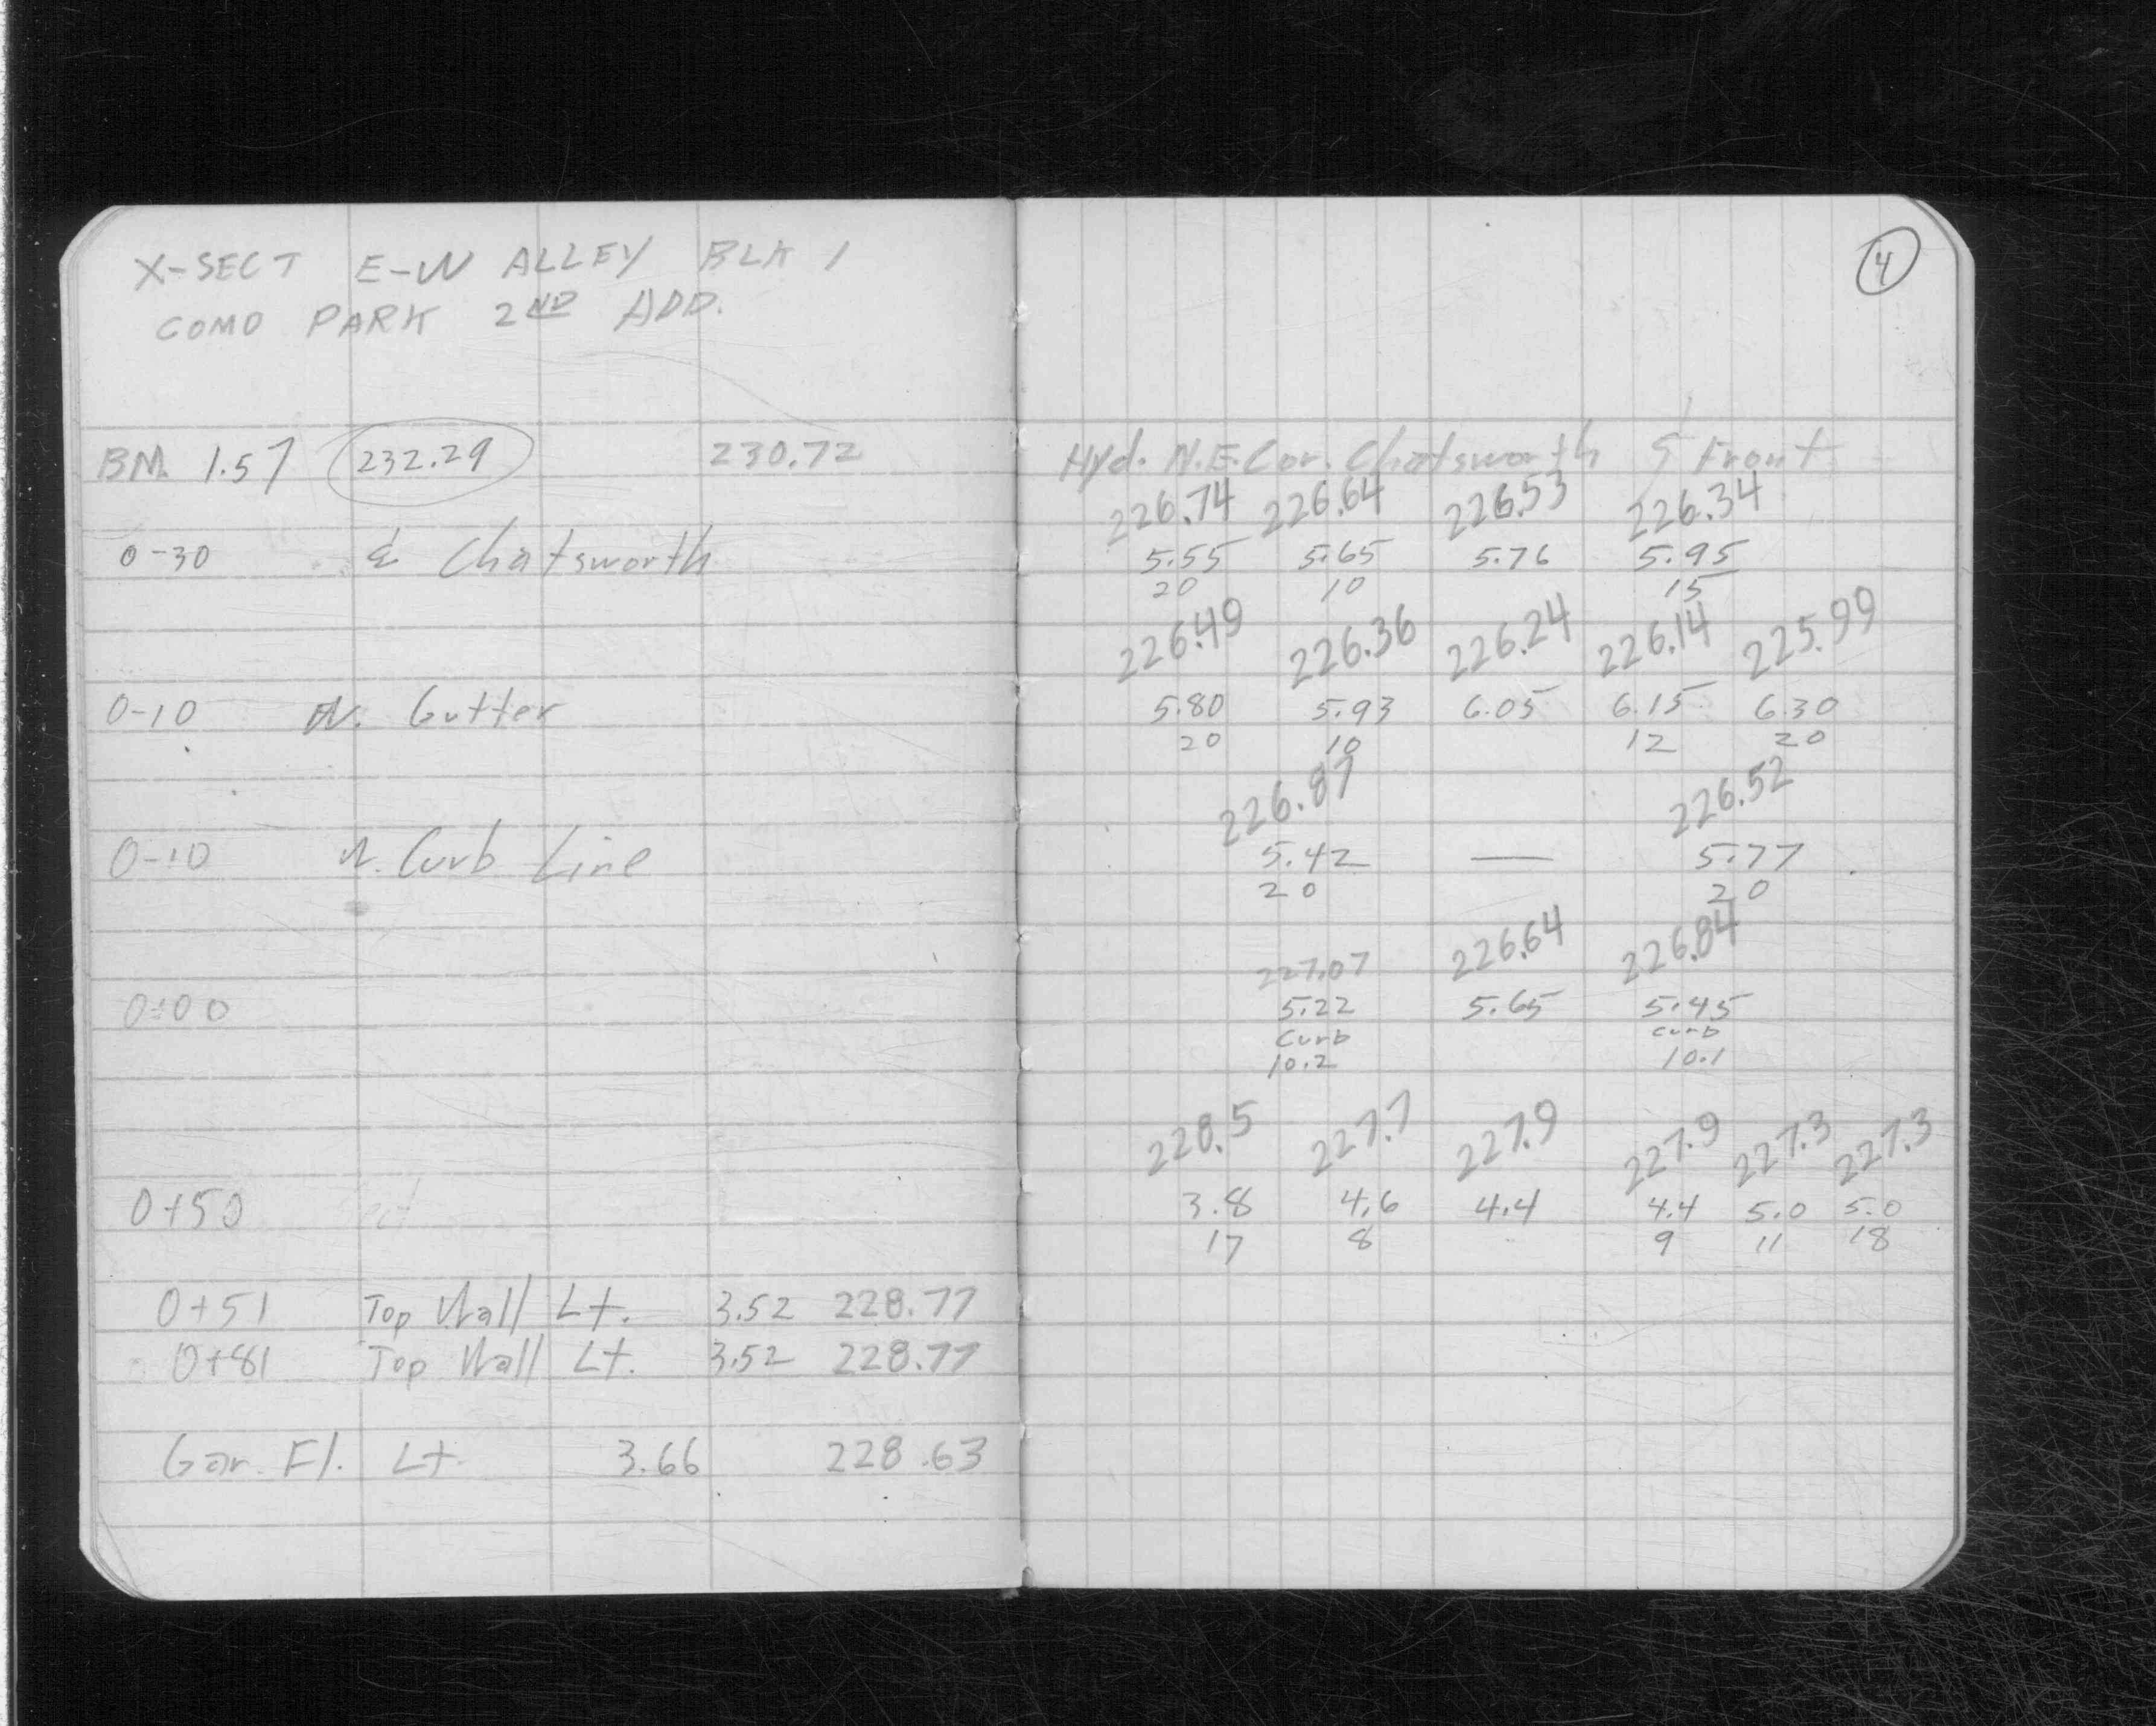 X-SECT E-W ALLEY BLK 1
COMO PARK 2ND ADD.
BM. 1.57 232.29 230.72
0-30 ℄ Chatsworth
0-10 N. Gutter
0-10 N. Curb Line
0+00
0+50
0+51 Top Wall Lt. 3.52 228.77
0+81 Top Wall Lt. 3.52 228.77
Gar. Fl. Lt. 3.66 228.63
4
Hyd. N.E. Cor. Chatsworth & Front
226.74 226.64 226.53 226.34
5.55 5.65 5.76 5.95
20 10 15
226.49 226.36 226.24 226.14 225.99
5.80 5.93 6.05 6.15 6.30
20 10 12 20
226.87 226.52
5.42 — 5.77
20 20
227.07 226.64 226.84
5.22 5.65 5.45
Curb curb
10.2 10.1
228.5 227.7 227.9 227.9 227.3 227.3
3.8 4.6 4.4 4.4 5.0 5.0
17 8 9 11 18